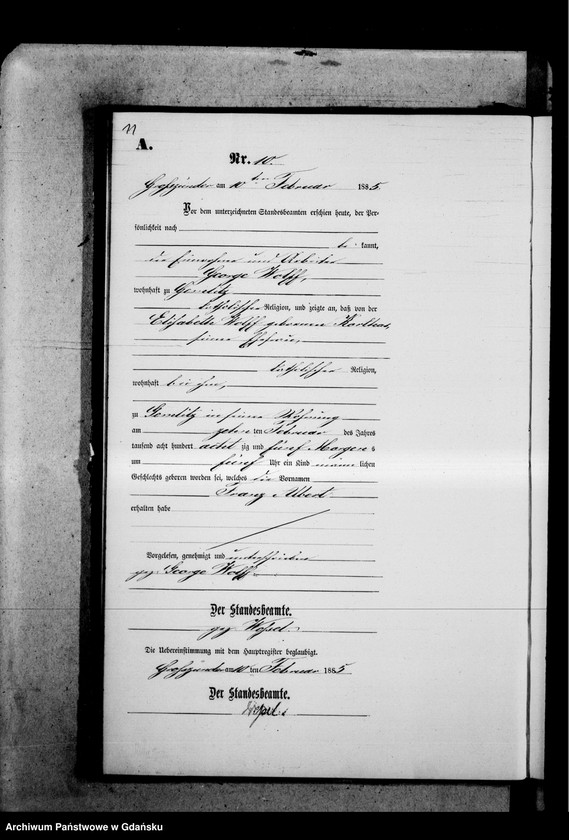 11
A.
Nr. 10.
Großzünder am 10ten Februar 1885.
Vor dem unterzeichneten Standesbeamten erschien heute, der Per-
sönlichkeit nach
be kannt,
der Einwohner und Arbeiter
George Wolff,
wohnhaft zu Gemlitz
katholischer Religion, und zeigte an, daß von der
Elisabeth Wolff geborenen
seiner Ehefrau,
katholischer Religion,
wohnhaft bei ihm,
zu Gemlitz in seiner Wohnung
am ten Februar des Jahres
tausend acht hundert achtzig und fünf Morgens
um fünf Uhr ein Kind männlichen
Geschlechts geboren worden sei, welches die Vornamen
Franz Albert
erhalten habe
Vorgelesen, genehmigt und unterschrieben
gez. George Wolff
Der Standesbeamte.
gez. Wessel.
Die Uebereinstimmung mit dem Hauptregister beglaubigt.
Großzünder am 10 ten Februar 1885
Der Standesbeamte.
Wessel.
Archiwum Państwowe w Gdańsku